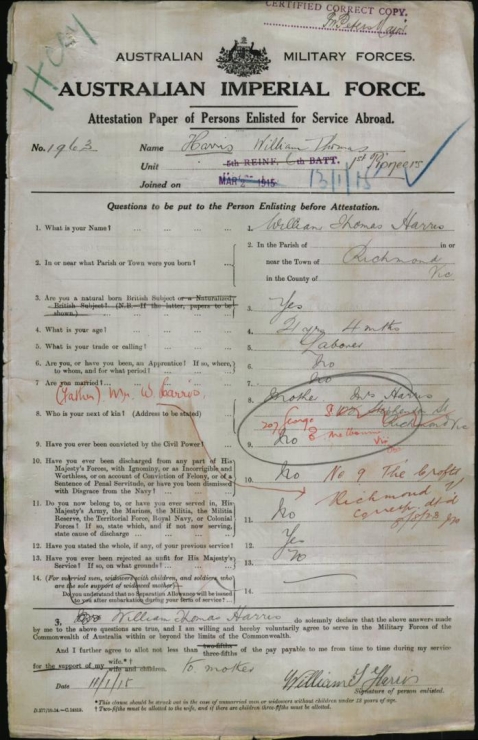 CERTIFIED CORRECT COPY.
H COY
AUSTRALIAN MILITARY FORCES.
AUSTRALIAN IMPERIAL FORCE.
Attestation Paper of Persons Enlisted for Service Abroad.
No. 1963 Name Harris William Thomas
Unit 5th REINF. 6th BATT. 1st Pioneers
Joined on MAR 2 1915 13/1/15
Questions to be put to the Person Enlisting before Attestation.
1. What is your Name? ... ... ... 1. William Thomas Harris
2. In or near what Parish or Town were you born? ... 2. In the Parish of in or
near the Town of Richmond
in the County of Vic
3. Are you a natural born British Subject or a Naturalized
British Subject? (N.B.—If the latter, papers to be
shown.) 3. Yes
4. What is your age? ... ... ... 4. 21 yrs 4 mths
5. What is your trade or calling? ... ... 5. Labourer
6. Are you, or have you been, an Apprentice? If so, where,
to whom, and for what period? ... ... 6. No
7. Are you married? ... ... 7. No
(Father) Wm W Harris
8. Who is your next of kin? (Address to be stated) ... 8. Mother Mrs Harris
Richmond Vic
207 George St
E Melbourne
Vic
9. Have you ever been convicted by the Civil Power? ... 9. No
10. Have you ever been discharged from any part of His
Majesty's Forces, with Ignominy, or as Incorrigible and
Worthless, or on account of Conviction of Felony, or of a
Sentence of Penal Servitude, or have you been dismissed
with Disgrace from the Navy? ... 10. No
No 9 The Crofts
Richmond
11. Do you now belong to, or have you ever served in, His
Majesty's Army, the Marines, the Militia, the Militia
Reserve, the Territorial Force, Royal Navy, or Colonial
Forces? If so, state which, and if not now serving,
state cause of discharge ... ... 11. No
12. Have you stated the whole, if any, of your previous service? 12. Yes
13. Have you ever been rejected as unfit for His Majesty's
Service? If so, on what grounds? ... ... 13. No
14. (For married men, widowers with children, and soldiers who
are the sole support of widowed mother)—
Do you understand that no Separation Allowance will be issued
to you after embarkation during your term of service? ... 14.
3. I, William Thomas Harris do solemnly declare that the above answers made
by me to the above questions are true, and I am willing and hereby voluntarily agree to serve in the Military Forces of the
Commonwealth of Australia within or beyond the limits of the Commonwealth.
And I further agree to allot not less than two-fifths three-fifths of the pay payable to me from time to time during my service
for the support of my wife.*† wife and children. to mother
Date 11/1/15 William T Harris
Signature of person enlisted.
*This clause should be struck out in the case of unmarried men or widowers without children under 18 years of age.
† Two-fifths must be allotted to the wife, and if there are children three-fifths must be allotted.